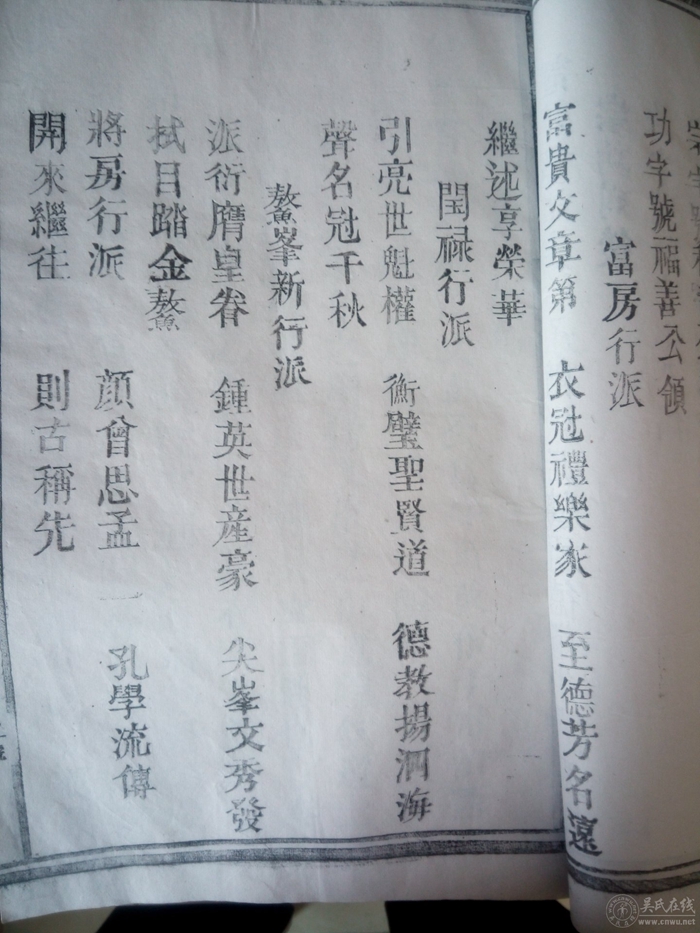 功字號福善公領
富房行派
富貴文章第 衣冠禮樂家 至德芳名遠
繼述享榮華
閏祿行派
引亮世魁權 衡璧聖賢道 德教揚泗海
聲名冠千秋
鰲峯新行派
派衍膺皇眷 鍾英世産豪 尖峯文秀發
拭目踏金鰲
將房行派 顔曾思孟一 孔學流傳
開來繼往 則古稱先
吴氏在线
www.cnwu.net